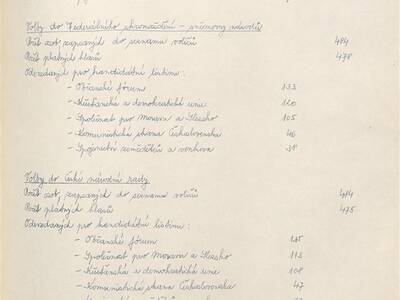 Volby do Federálního shromáždění - sněmovny národů
Počet osob zapsaných do seznamu voličů 484
Počet platných hlasů 478
Odevzdaných pro kandidátní listinu:
- Občanské fórum 133
- Křesťanská a demokratická unie 120
- Společnost pro Moravu a Slezsko 105
- Komunistická strana Československa 46
- Spojenectví zemědělců a venkova 38
Volby do České národní rady
Počet osob zapsaných do seznamu voličů 484
Počet platných hlasů 475
Odevzdaných pro kandidátní listinu:
- Občanské fórum 135
- Společnost pro Moravu a Slezsko 113
- Křesťanská a demokratická unie 108
- Komunistická strana Československa 47